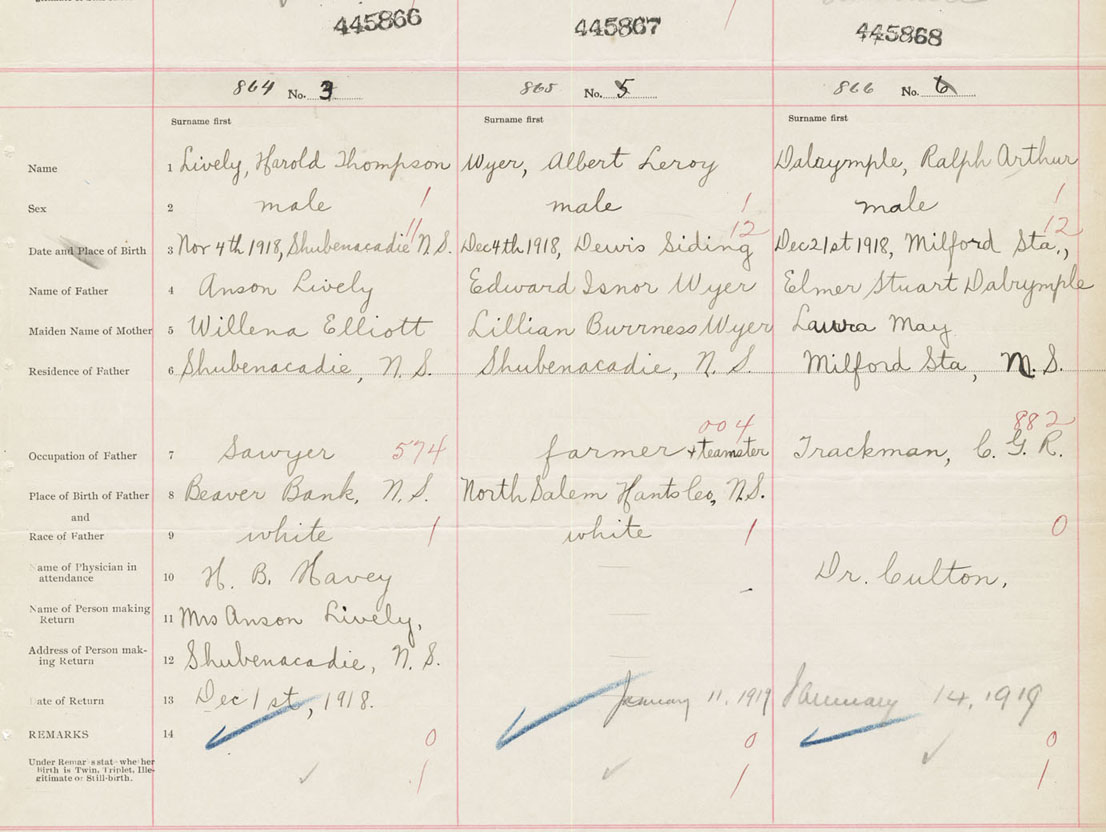 445866 445867 445868
864 No. 3 865 No. 5 866 No. 6
Surname first Surname first Surname first
Name 1 Lively, Harold Thompson Wyer, Albert Leroy Dalrymple, Ralph Arthur
Sex 2 male 1 male 1 male 1
11 12 12
Date and Place of Birth 3 Nov 4th 1918, Shubenacadie N.S. Dec 4th 1918, Dewis Siding Dec 21st 1918, Milford Sta.,
Name of Father 4 Anson Lively Edward Isnor Wyer Elmer Stuart Dalrymple
Maiden Name of Mother 5 Willena Elliott Lillian Burrness Wyer Laura May
Residence of Father 6 Shubenacadie, N.S. Shubenacadie, N.S. Milford Sta, N.S.
004 882
Occupation of Father 7 Sawyer 574 farmer + teamster Trackman, C.G.R.
Place of Birth of Father 8 Beaver Bank, N.S. North Salem Hants Co, N.S.
and
Race of Father 9 white 1 white 1 0
Name of Physician in
attendance 10 H. B. Havey Dr. Culton.
Name of Person making
Return 11 Mrs Anson Lively,
Address of Person mak-
ing Return 12 Shubenacadie, N.S.
Date of Return 13 Dec 1st, 1918. January 11, 1919 January 14, 1919
REMARKS 14 0 0 0
Under Remarks state whether
Birth is Twin, Triplet, Ille-
gitimate or Still-birth. 1 1 1